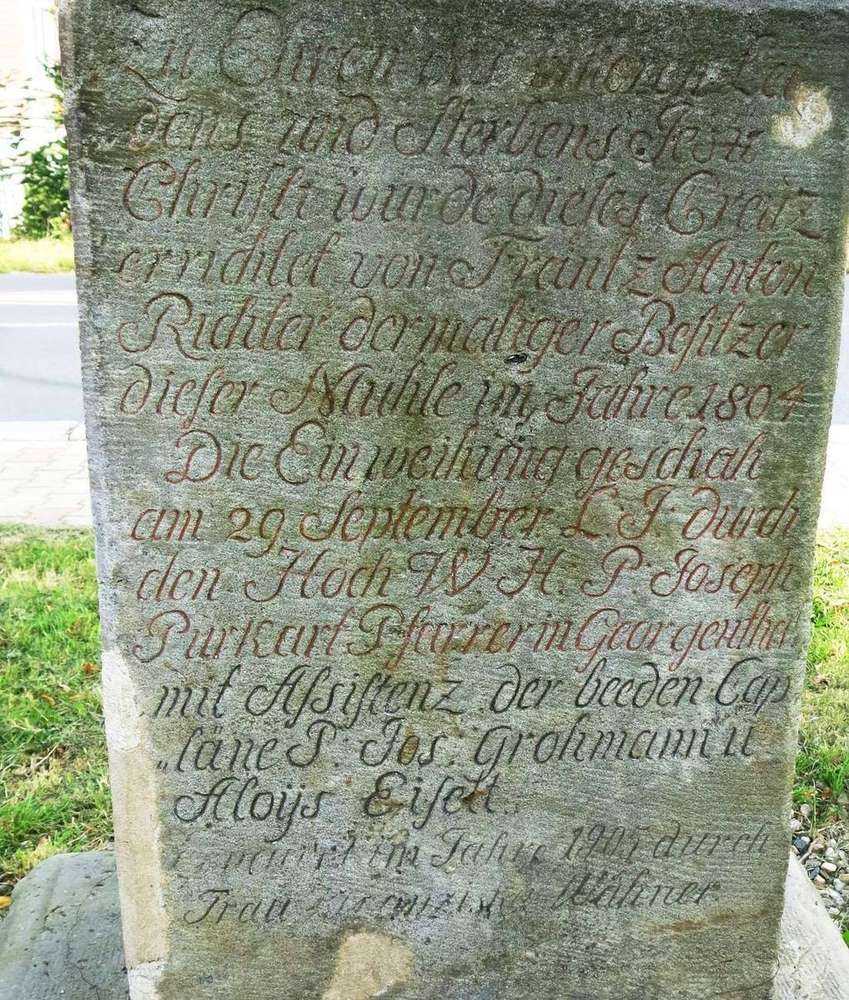 Zu Ehren des bitteren Lei
dens und Sterbens Jesu
Christi wurde dieses Creitz
errichtet von Frantz Anton
Richter dermaliger Besitzer
dieser Muhle im Jahre 1804
Die Einweihung geschah
am 29 September L: J: durch
den Hoch W. H. P. Joseph
Purkart Pfarrer in Georgenthal
mit Assistenz der beeden Cap
„läne P. Jos. Grohmann u
Aloys Eiselt.
im Jahre 1905 durch
Frau Franziska Wähner